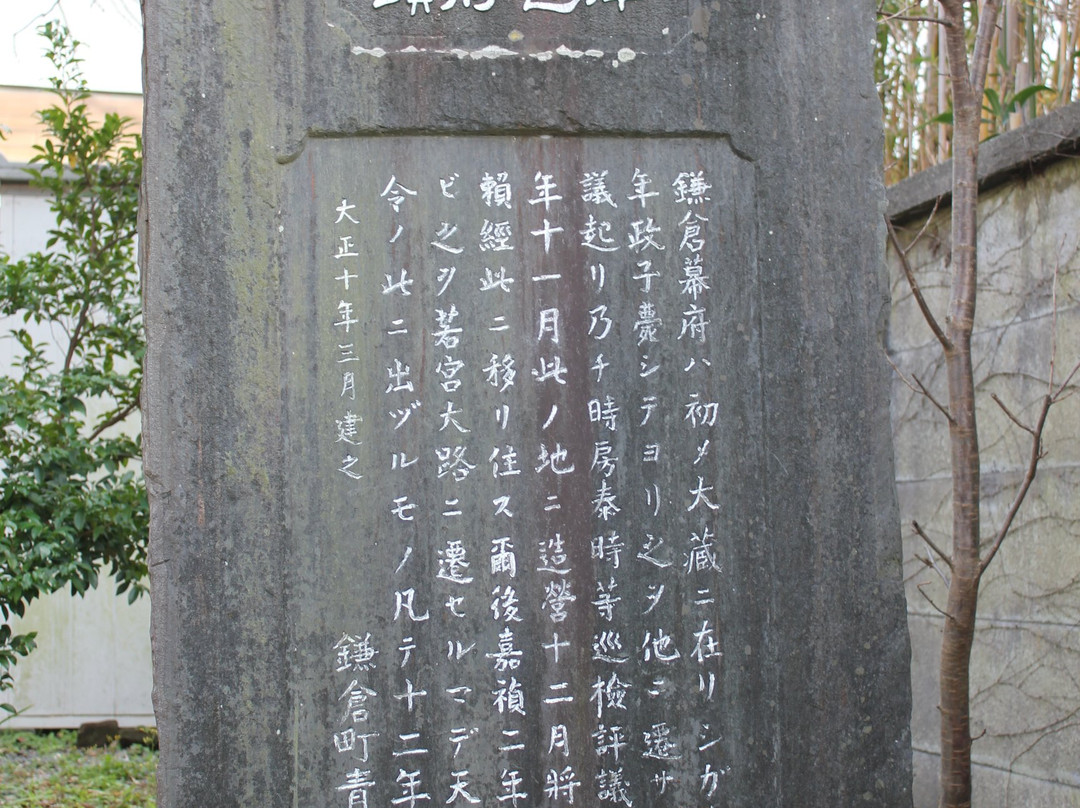 鎌倉幕府ハ初メ大蔵ニ在リシガ
年政子薨シテヨリ之ヲ他ニ遷サ
議起リ乃チ時房泰時等巡檢評議
年十一月此ノ地ニ造營十二月將
賴經此ニ移リ住ス爾後嘉禎二年
ビ之ヲ若宮大路ニ遷セルマデ天
令ノ此ニ出ヅルモノ凡テ十二年
大正十年三月建之
鎌倉町青